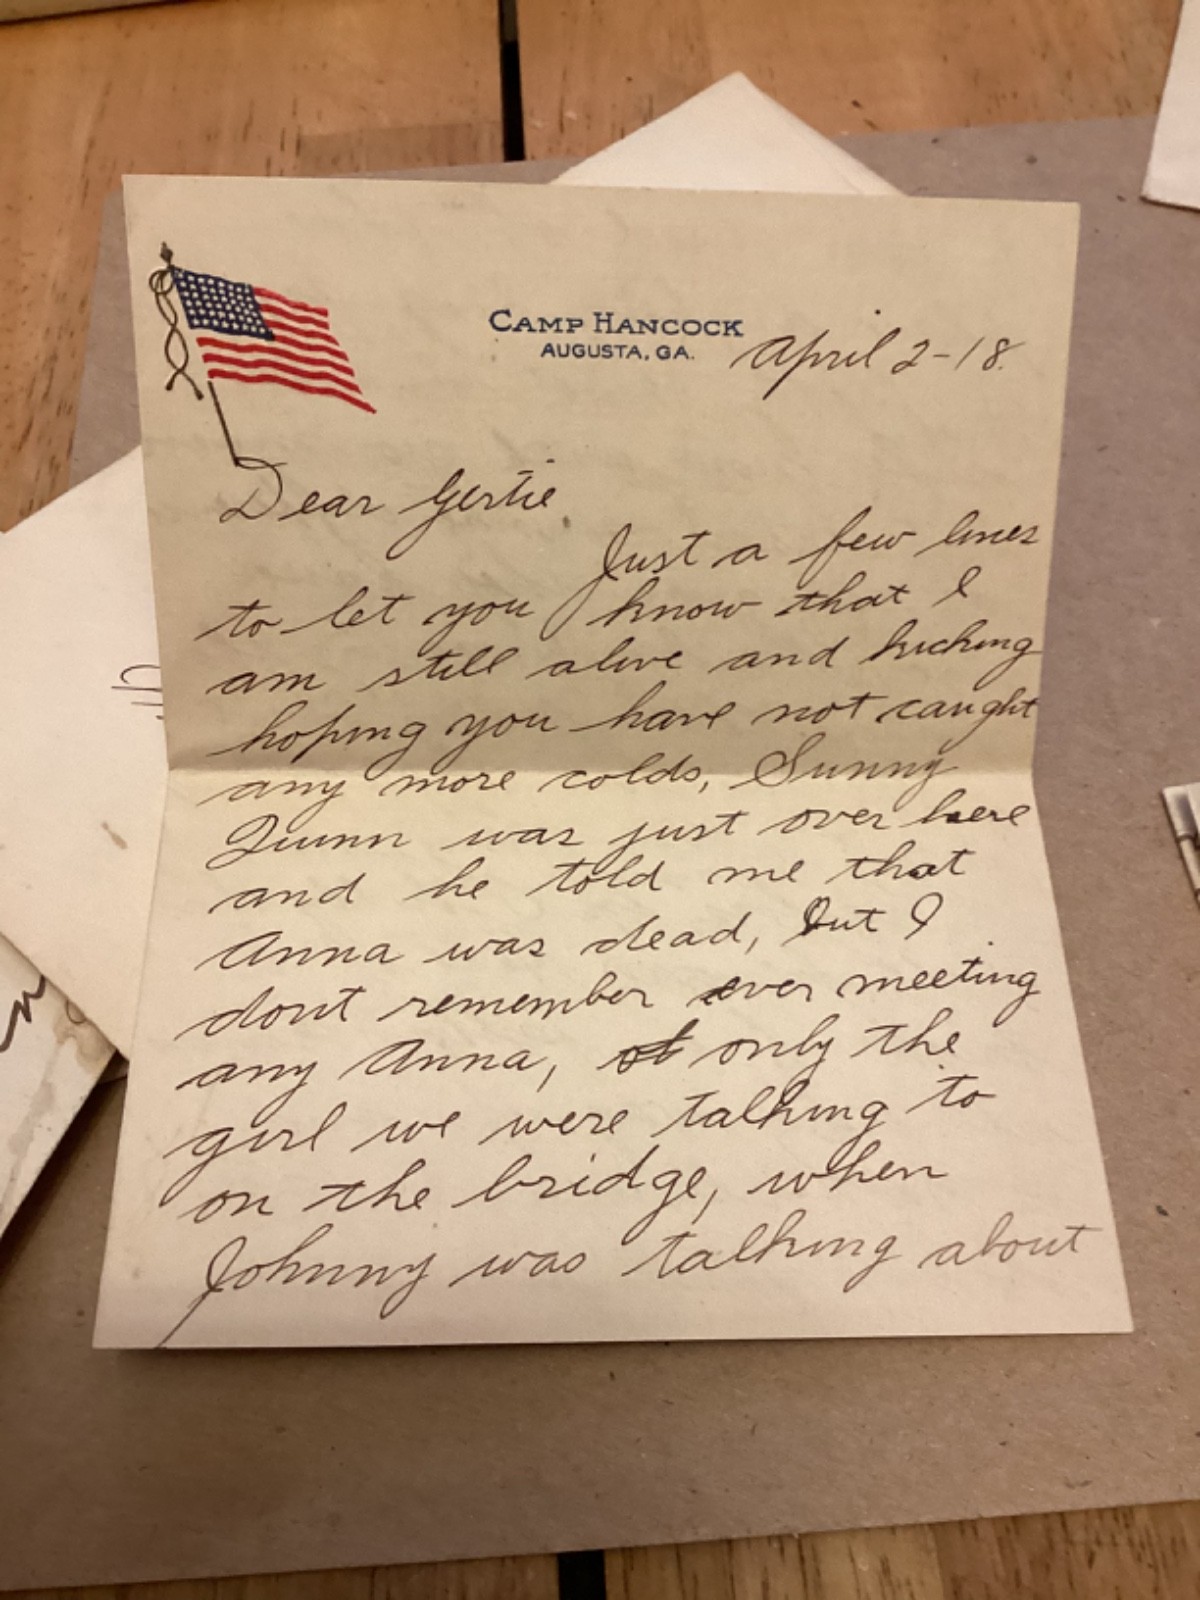 CAMP HANCOCK
AUGUSTA, GA.
April 2-18.
Dear Gertie
Just a few lines
to let you know that I
am still alive and kicking
hoping you have not caught
any more colds, Sunny
Quinn was just over here
and he told me that
Anna was dead, but I
dont remember ever meeting
any Anna, only the
girl we were talking to
on the bridge, when
Johnny was talking about